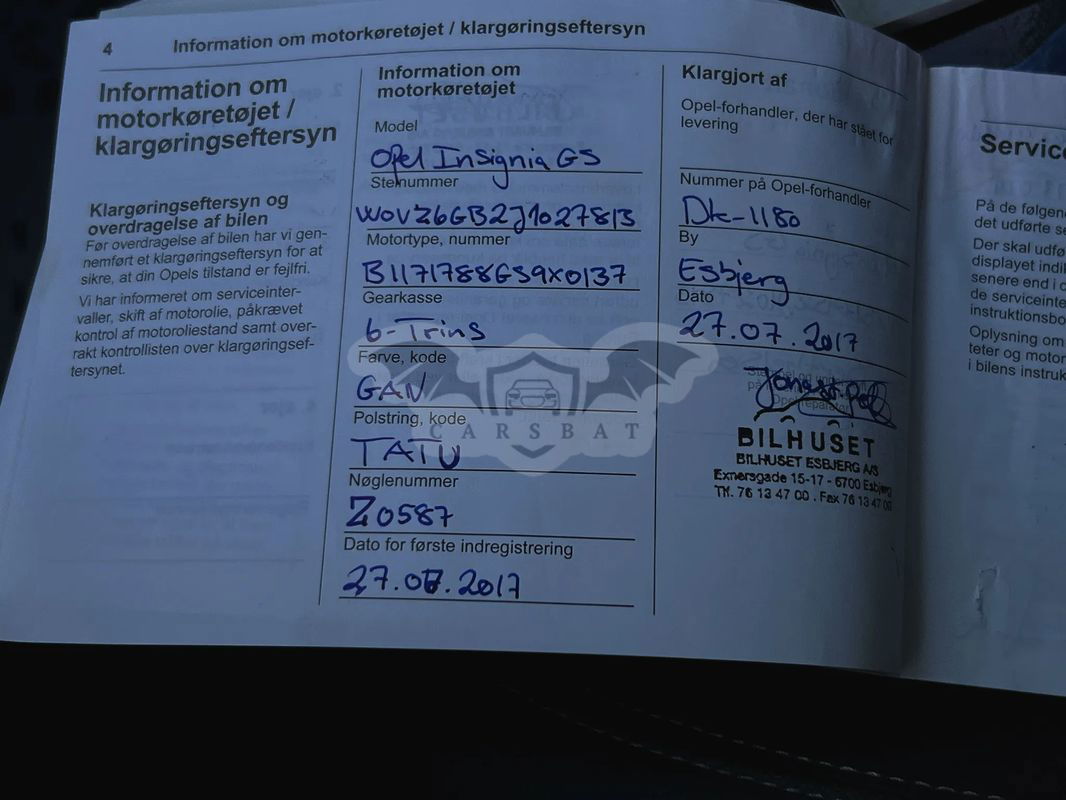 4 Information om motorkøretøjet / klargøringseftersyn
Information om
motorkøretøjet /
klargøringseftersyn
Klargøringseftersyn og
overdragelse af bilen
Før overdragelse af bilen har vi gen-
nemført et klargøringseftersyn for at
sikre, at din Opels tilstand er fejlfri.
Vi har informeret om serviceinter-
valler, skift af motorolie, påkrævet
kontrol af motoroliestand samt over-
rakt kontrollisten over klargøringsef-
tersynet.
Information om
motorkøretøjet
Model
Opel Insignia GS
Stelnummer
W0VZ6GB2J1027813
Motortype, nummer
B1171788GS9X0137
Gearkasse
6-Trins
Farve, kode
GAN
Polstring, kode
TATU
Nøglenummer
Z0587
Dato for første indregistrering
27.07.2017
Klargjort af
Opel-forhandler, der har stået for
levering
Nummer på Opel-forhandler
DK-1180
By
Esbjerg
Dato
27.07.2017
BILHUSET
BILHUSET ESBJERG A/S
Exnersgade 15-17 - 6700 Esbjerg
Tlf. 76 13 47 00 . Fax 76 13 47 00
CARSBAT
Service
På de følgen
det udførte se
Der skal udfø
displayet indik
senere end i d
de serviceinte
instruktionsbo
Oplysning om
teter og motor
i bilens instruk